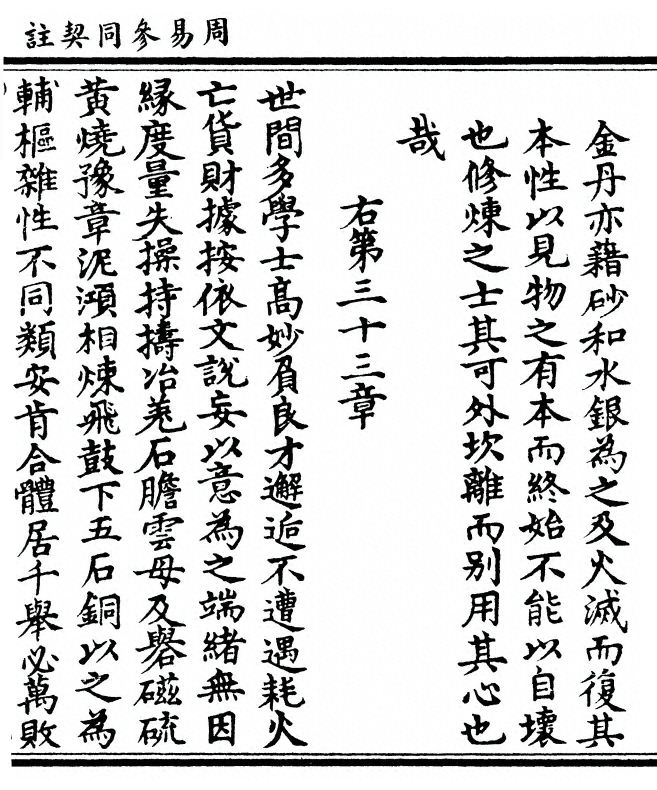 周易參同契註
金丹亦藉砂和水銀為之及火滅而復其
本性以見物之有本而終始不能以自壞
也修煉之士其可外坎離而别用其心也
哉
右第三十三章
世間多學士高妙負良才邂逅不遭遇耗火
亡貨財據按依文說妄以意為之端緒無因
緣度量失操持擣冶羌石膽雲母及礜磁硫
黃燒豫章泥澒相煉飛鼓下五石銅以之為
輔樞雜性不同類安肯合體居千舉必萬敗